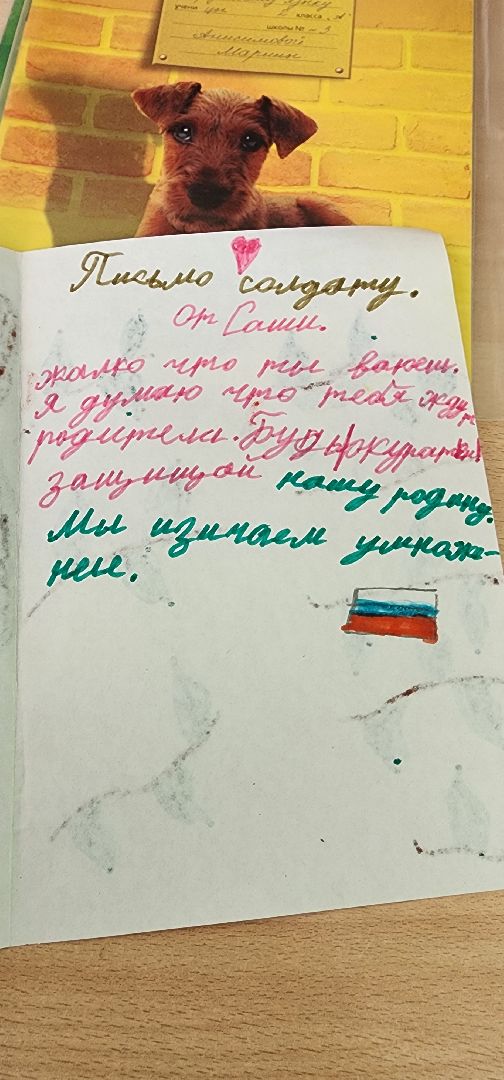 языку
учени цы класса „А"
школы № 3
Анисимовой
Марины
Письмо солдату.
от Саши.
жалко что ты ваюеш.
Я думаю что тебя ждут
родители. Будь
защищай нашу родину.
Мы изучаем умноже-
ние.